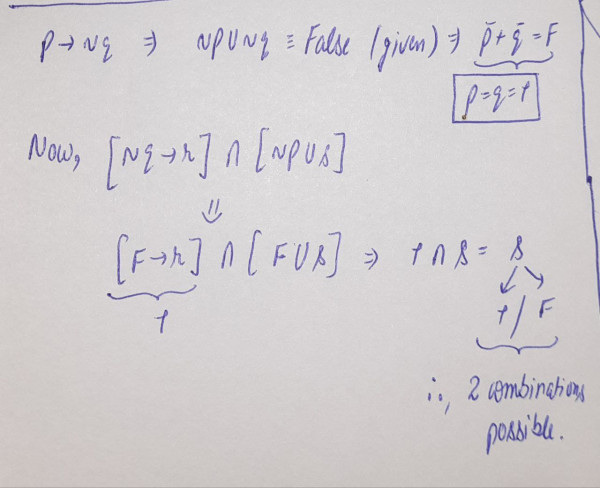 p → ~q ⇒ ~p ∪ ~q ≡ False (given) ⇒ p̄ + q̄ = F
p = q = T
Now, [~q → r] ∩ [~p ∪ s]
⇓
[F → r] ∩ [F ∪ s] ⇒ T ∩ s = s
T
T / F
∴, 2 combinations
possible.